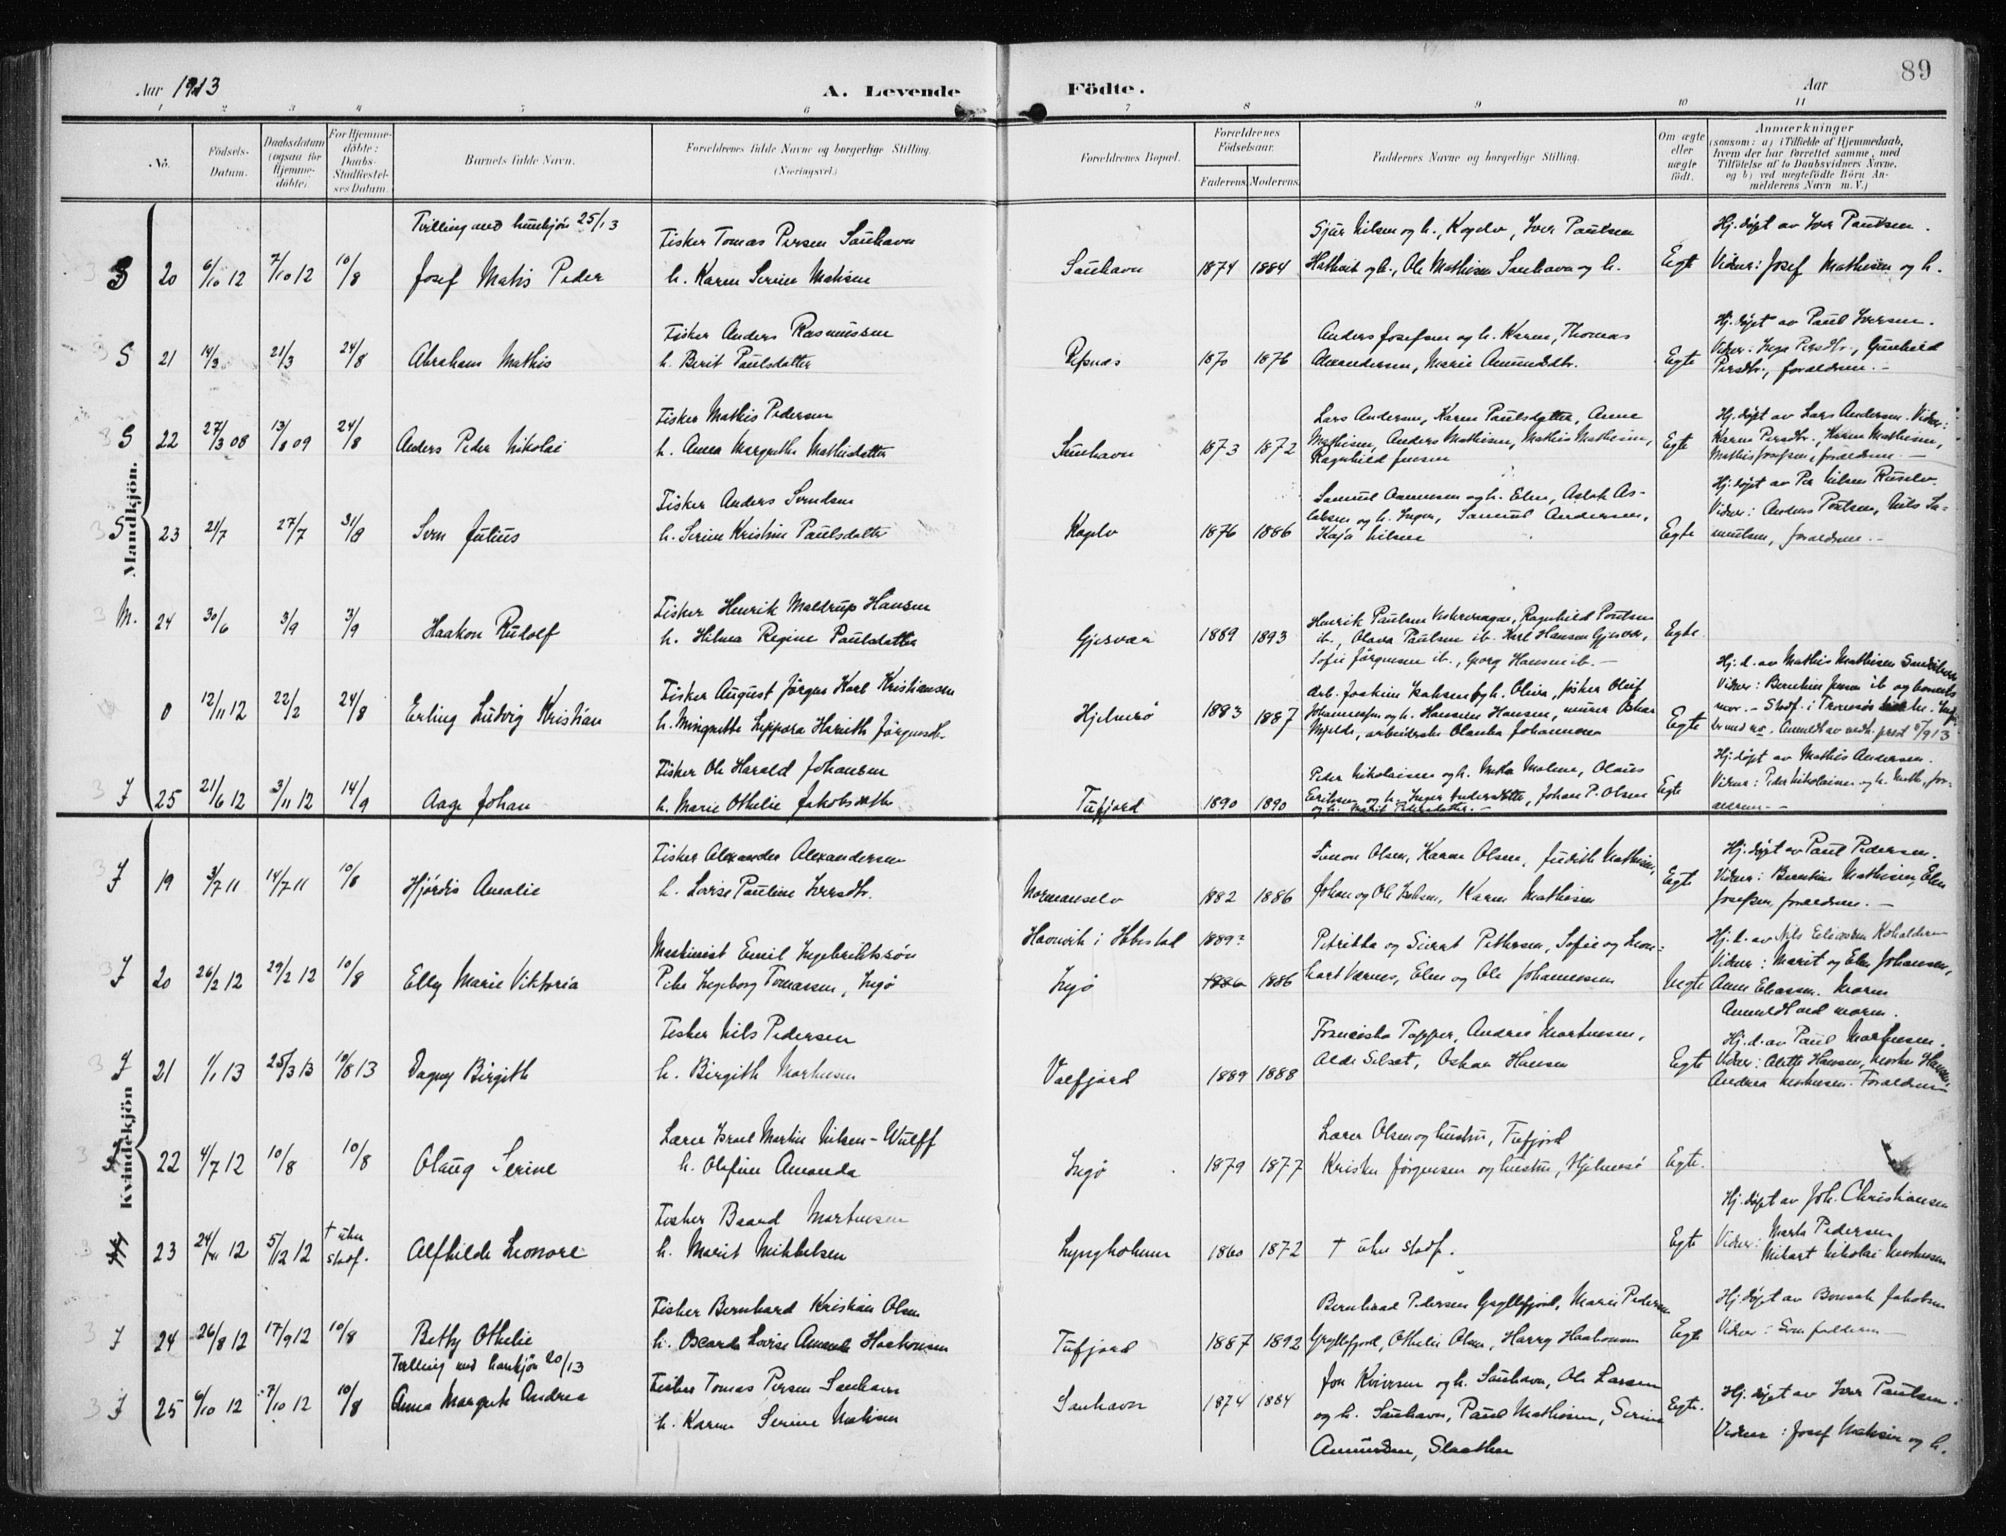 89
Aar 1913
A. Levende Födte.
Aar
1 2 3 4 5 6 7 8 9 10 11
No.
Födsels-
Datum.
Daabsdatum
(ogsaa for
Hjemme-
döbte)
For Hjemme-
döbte:
Daabs-
Stadfæstel-
ses Datum.
Barnets fulde Navn.
Forældrenes fulde Navne og borgerlige Stilling.
(Næringsvei.)
Forældrenes Bopæl.
Forældrenes
Födselsaar.
Faderens. Moderens.
Faddernes Navne og borgerlige Stilling.
Om ægte
eller
uægte
födt.
Anmærkninger
(saasom: a) i Tilfælde af Hjemmedaab,
hvem der har forrettet samme, med
Tilföielse af to Daabsvidners Navne,
og b) ved uægtefödte Börn An-
melderens Navn m. V.)
Mandkjön.
Tvilling med kvinkjøn 25/13
S 20 6/10 12 7/10 12 10/8 Josef Matis Peder
Fisker Tomas Persen Sauhavn
h. Karen Serine Matisen
Sauhavn 1874 1884
Sjur Nilsen og h., Iver Paulsen
og h., Ole Mathisen Sauhavn og h.
Egte
Hj. døpt av Iver Paulsen.
Vidner: Josef Mathisen og h.
S 21 14/3 21/3 24/8 Abraham Mathis
Fisker Anders Rasmussen
h. Berit Paulsdatter
Refsnes 1870 1876
Anders Josefsen og h. Karen, Thomas
Alexandersen, Marie Amundsdtr.
Egte
Hj. døpt av Paul Iversen.
Vidner: Inga Persdtr., Gunhild
Persdtr., forældrene.
S 22 27/3 08 13/8 09 24/8 Anders Peder Nikolai
Fisker Mathis Pedersen
h. Anna Margrethe Mathisdatter
Sauhavn 1873 1872
Lars Andersen, Karen Paulsdatter, Anne
Mathisen, Anders Mathisen, Mathis Mathisen,
Ragnhild Jensen
Egte
Hj. døpt av Lars Andersen. Vidner:
Karen Persdtr., Karen Mathisen,
Mathis Josefsen, forældrene.
S 23 21/7 27/7 31/8 Sven Julius
Fisker Anders Svendsen
h. Serine Kristine Paulsdatter
1876 1886
Samuel og h. Elen, Aslak As-
laksen og h. Inger, Samuel Andersen,
Kaja Nilsen
Egte
Hj. døpt av Per Nilsen
Vidner: Anders Poulsen, Nils Sa-
muelsen, forældrene.
M. 24 30/6 3/9 3/9 Haakon Rudolf
Fisker Henrik Maldrup Hansen
h. Hilma Regine Paulsdatter
Gjesvær 1889 1893
Henrik Paulsen, Ragnhild Poulsen
ib., Olava Paulsen ib. Karl Hansen Gjesvær,
Sofie Jørgensen ib., Georg Hansen ib.
Egte
0 12/11 12 22/2 24/8 Erling Ludvig Kristian
Fisker August Jørgen Karl Kristiansen
h. Harieth Jørgensdtr.
Hjelmsø 1883 1887
Arb. Joakim Isaksen og h. Oliva, fisker Oluf
Johannessen og h. Hansine Hansen, murer Oskar
Mjelde, arbeiderske Olanka Johannesen
Egte
Hj. d. av Mathis Mathisen
Vidner: Berntine Jensen ib og barnets
mor. Stadf. i Tromsø
Anmeldt av vedk. prest 5/9 13
J 25 21/6 12 3/11 12 14/9 Aage Johan
Fisker Ole Harald Johansen
h. Marie Othelie Jakobsdatter
Tufjord 1890 1890
Peder Nikolaisen og h. Malene, Olaus
Eriksen og h. Inger Andersdatter, Johan P. Olsen
og h. Marit Pedersdatter.
Egte
Hj. døpt av Mathis Andersen.
Vidner: Peder Nikolaisen og h. for-
ældrene.
Kvindekjön
J 19 3/7 11 14/7 11 10/8 Hjørdis Amalie
Fisker Alexander Alexandersen
h. Lovise Pauline Iversdtr.
1882 1886
Simon Olsen, Karen Olsen, Judith Mathisen,
Johan og Ole Isaksen, Karen Mathisen
Egte
Hj. døpt av Paul Pedersen.
Vidner: Berntine Mathisen, Elen
Josefsen, forældrene.
J 20 26/2 12 29/2 12 10/8 Elly Marie Viktoria
Maskinist Emil Ingebriktsøn
Pike Ingeborg Tomassen, Ingø
Havnvik i Ibbestad 1889?
Ingø 1886 1886
Petrikka og Sivert Pettersen, Sofie og Leon-
hart Varnes, Elen og Ole Johannessen
Uegte
Hj. d. av Nils Eliassen
Vidner: Marit og Elen Johansen,
Anne Eliassen. Moren
Anmeldt ved moren.
J 21 1/1 13 25/3 13 10/8 13 Dagny Birgith
Fisker Nils Pedersen
h. Birgith Martinsen
Valfjord 1889 1888
Franciska Tapper, Andrea Martinsen,
Alde Selset, Oskar Hansen
Egte
Hj. d. av Paul Martinsen.
Vidner: Alette Hansen, Hansen,
Andrea Martinsen. Forældrene
22 4/7 12 10/8 10/8 Olaug Serine
Lærer Israel Martin Nilsen-Wulff
h. Olufine Amanda
Ingø 1879 1877
Lærer Olsen og hustru, Tufjord
Krisken Jørgensen og hustru, Hjelmsø
Egte.
23 24/11 12 5/12 12 † uten stadf. Alfhilde Leonore
Fisker Baard Martinsen
h. Marit Mikkelsen
Lyngholmen 1860 1872
† uten stadf.
Egte
Hj. døpt av Joh. Christiansen
Vidner: Marta Pedersen
Nikolai Martinsen
J 24 26/8 12 17/9 12 10/8 Betty Othelie
Fisker Bernhard Kristian Olsen
h. Oscarda Lovise Amanda Haakonsen
Tufjord 1887 1892
Bernhard Pedersen Gryllefjord, Marie Pedersen
Gryllefjord, Othelie Olsen, Harry Haakonsen
Egte
Hj. døpt av Jakobsen
Vidner: Som faddere
Tvilling med hankjøn 20/13
J 25 6/10 12 7/10 12 10/8 Anna Margrete Andrea
Fisker Tomas Persen Sauhavn
h. Karen Serine Matisen
Sauhavn 1874 1884
Jon Kvivesen og h. Sauhavn, Ole Larsen
og h. Sauhavn, Paul Mathisen, Serine
Amundsen, Slaatten
Egte.
Hj. døpt av Iver Paulsen.
Vidner: Josef Mathisen og h.